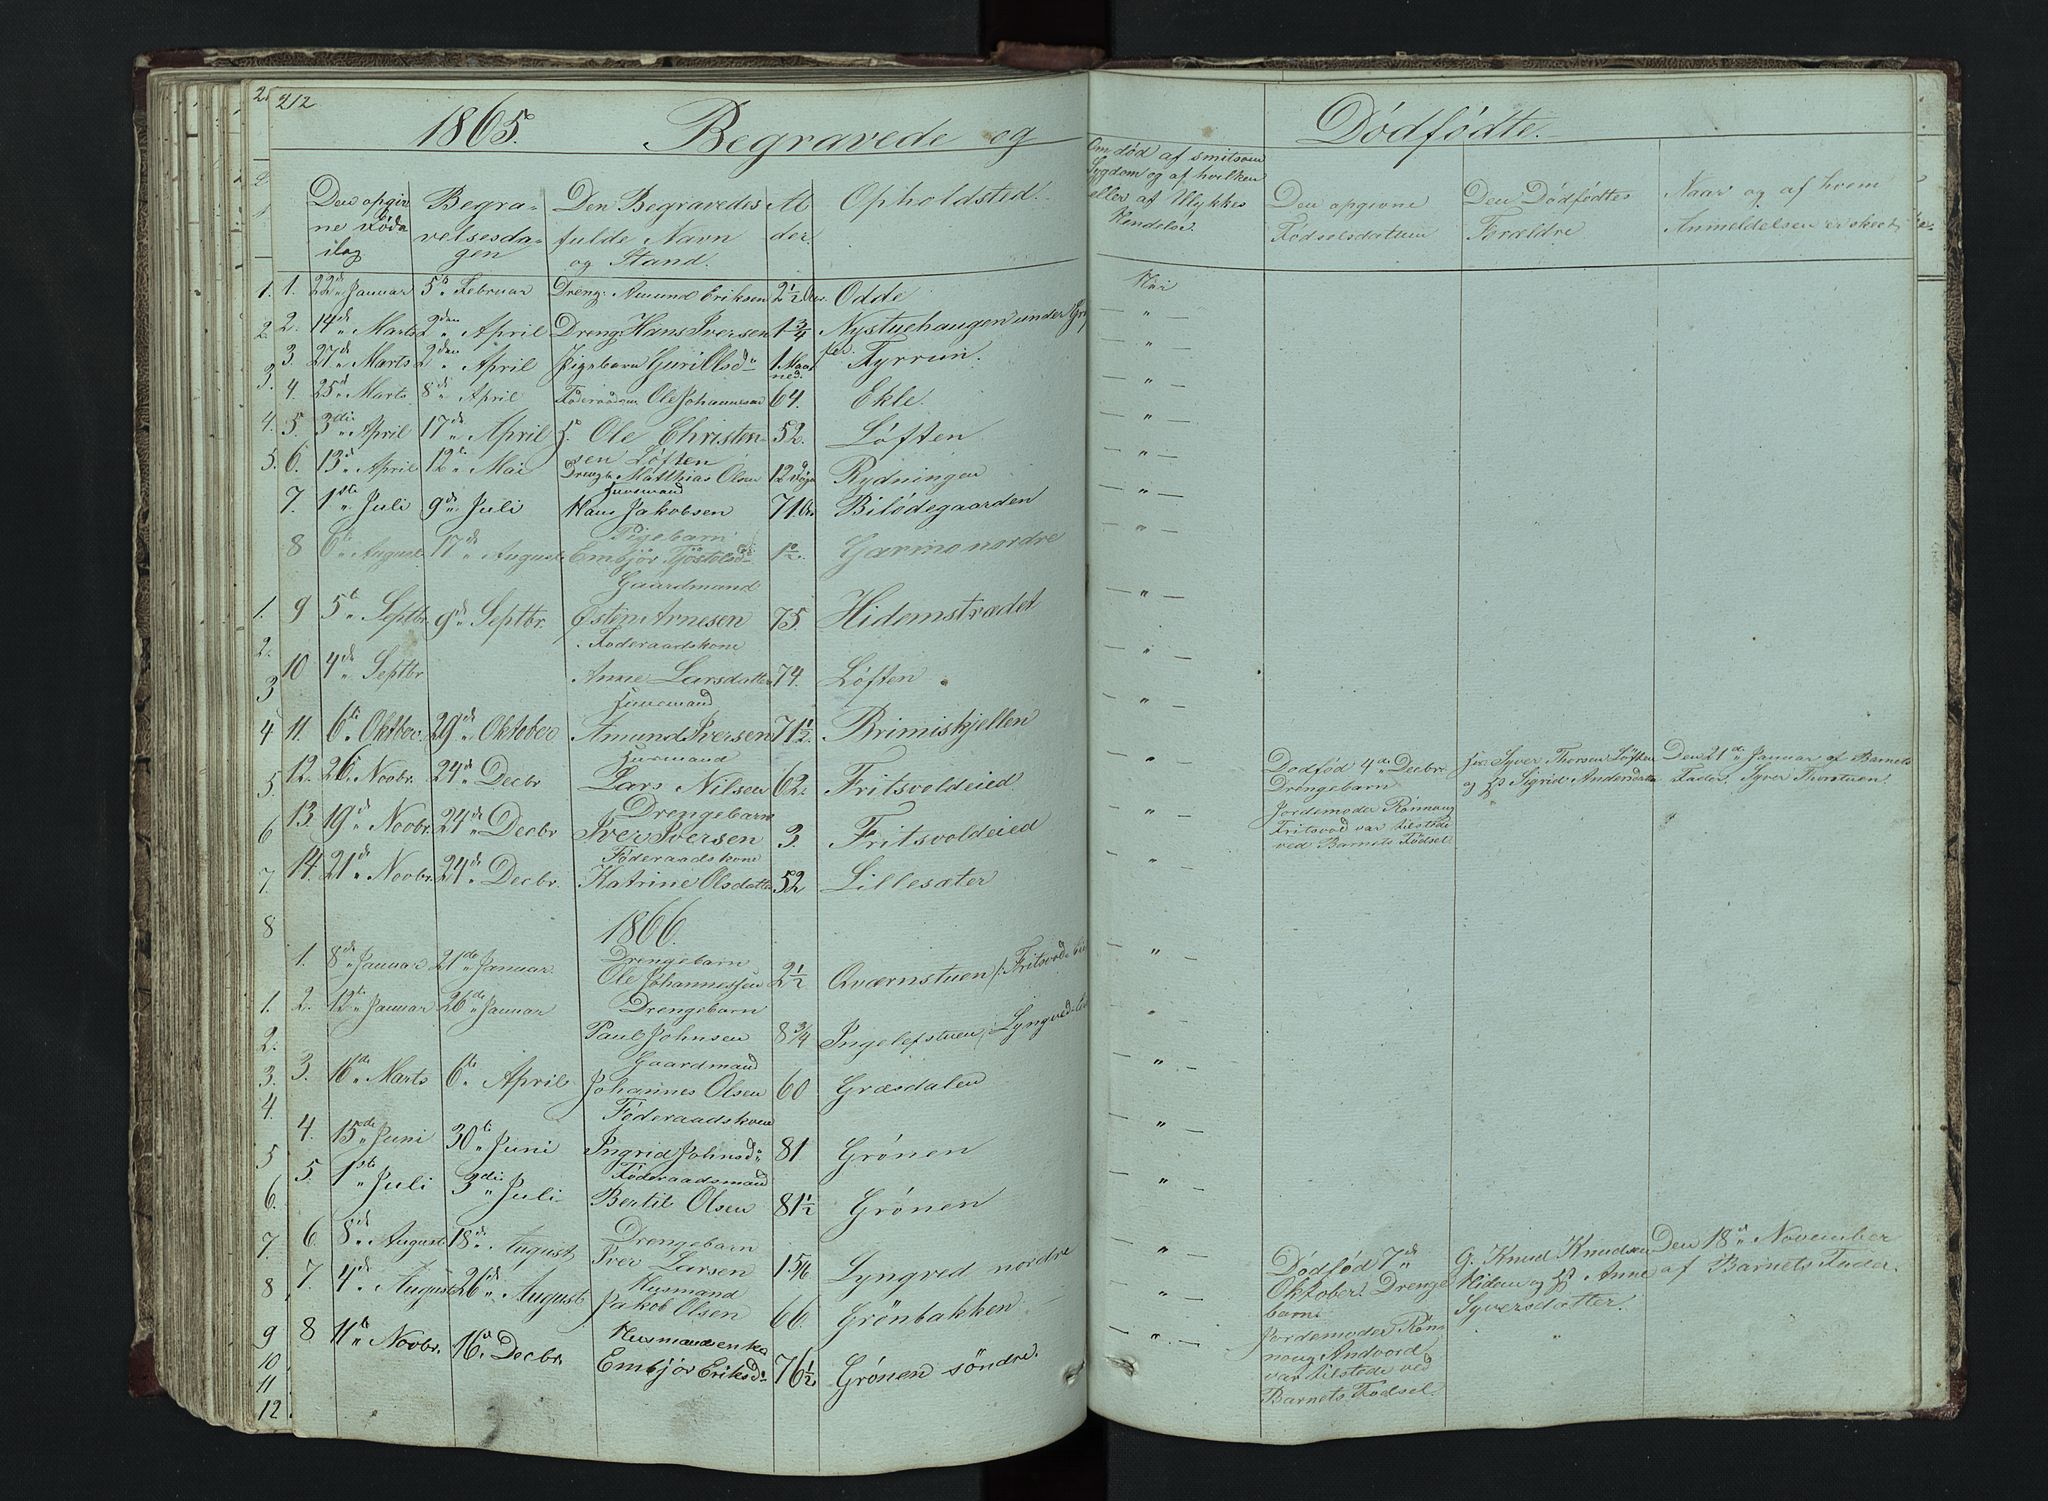 212
1865. Begravede og Dødfødte.
Den opgiv
ne Døds
dag
Begra-
velsesda-
gen
Den Begravedes
fulde Navn
og Stand.
Al
der.
Opholdsted.
Om død af smitsom
Sygdom og af hvilken
eller af Ulykkes
Hendelse.
Den opgivne
Fødselsdatum
Den Dødfødtes
Forældre
Naar og af hvem
Anmeldelsen er skeet
1. 22de Januar 5te Februar Dreng: Amund Eriksen 2½ Odde Nei
2. 14de Marts 2den April Dreng: Hans Iversen 1¾ Nystuehaugen under - " -
3. 27de Marts 2den April Pigebarn Guri 1 Maa
ned. Fyrrun. - " -
4. 25de Marts 8de April Føderaadsm Ole Johannesen 64. Ekle. - " -
5. 3die April 17de April Ole Christen-
sen Løften 52. Løften - " -
6. 13de April 12te Mai Drengb. Matthias Olsen 12 Døgn Rydningen - " -
7. 1ste Juli 9de Juli Huusmand
Hans Jakobsen 71 Bilødegaarden - " -
8 6te August 17de August Pigebarn
Embjør Tjøstelsd 1½. Garmo nordre - " -
9 5te Septbr. 9de Septbr. Gaardmand
Østen Arnesen 75. Hidemstrædet - " -
10 4de Septbr Føderaadskone
Anne Larsdatter 74. Løften - " -
11. 6te Oktber. 29de Oktober Huusmand
Amund Iversen 71½. Brimiskjellen - " -
12. 26 Novbr. 24de Decbr Husmand
Lars Nilsen 62. Fritsvoldeied. - " -
Dødfød 4de Decbr
Drengebarn
Jordemoder Rønnaug
Fritsvod var tilstede
ved Barnets Fødsel.
Syver Thorsen Løften
og Sigrid Andersdatter
Den 21de Januar af Barnets
Fader. Syver Thorsteen.
13. 19de Novbr. 24de Decbr Drengebarn
Iver Iversen 3. Fritsvoldeied - " -
14. 21de Novbr. 24de Decbr. Føderaadskone
Katrine Olsdatter 52 Lillesæter - " -
1866.
1. 8de Januar 21de Januar Drengebarn
Ole Johannessen 2½ Qværnstuen /: Fritsvod - " -
2. 12te Januar 26de Januar Drengebarn
Paul Johnsen 8¾ Ingelefstuen /: Lyngved - " -
3. 16de Marts 6te April Gaardmand
Johannes Olsen 60 Græsdalen - " -
4. 15de Juni 30te Juni Føderaadskone
Ingrid Johnsd. 81 Grønen - " -
5. 1ste Juli 3die Juli Føderaadsmand
Bertil Olsen 81½ Grønen - " -
6. 8de August 18de August Drengebarn
Iver Larsen 1 5/6 Lyngved nordre - " -
7. 4de August 26de August Husmand
Jakob Olsen 66. Grønbakken - " -
8 11te Novbr. 16de Decbr. Husmandsenke
Embjør Eriksd. 76½ Grønen søndre. - " -
Dødfød 7de
Oktober. Drenge
barn.
Jordemoder Røn-
naug Andvord
var tilstede ved
Barnets Fødsel.
G. Knud Knudsen
Hidem og Anne
Syversdatter.
Den 18de November
af Barnets Fader.